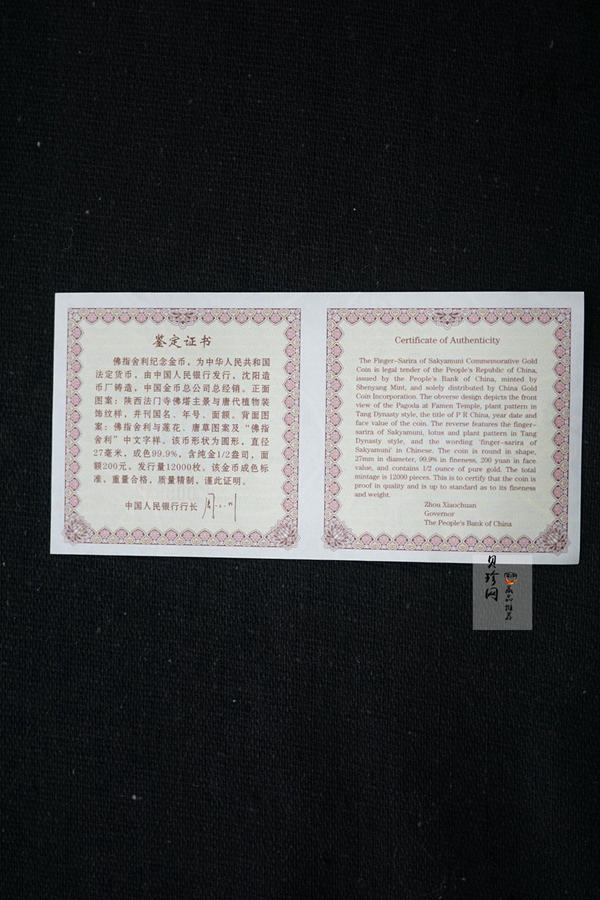 鉴定证书
佛指舍利纪念金币，为中华人民共和国
法定货币，由中国人民银行发行，沈阳造
币厂铸造，中国金币总公司总经销。正面
图案：陕西法门寺佛塔主景与唐代植物装
饰纹样，并刊国名、年号、面额。背面图
案：佛指舍利与莲花、唐草图案及“佛指
舍利”中文字样。该币形状为圆形，直径
27毫米，成色99.9%，含纯金1/2盎司，面
额200元，发行量12000枚。该金币成色标
准、重量合格，质量精制，谨此证明。
中国人民银行行长
Certificate of Authenticity
The Finger-Sarira of Sakyamuni Commemorative Gold
Coin is legal tender of the People's Republic of China,
issued by the People's Bank of China, minted by
Shenyang Mint, and solely distributed by China Gold
Coin Incorporation. The obverse design depicts the front
view of the Pagoda at Famen Temple, plant pattern in
Tang Dynasty style, the title of P R China, year date and
face value of the coin. The reverse features the finger-
sarira of Sakyamuni, lotus and plant pattern in Tang
Dynasty style, and the wording 'finger-sarira of
Sakyamuni' in Chinese. The coin is round in shape,
27mm in diameter, 99.9% in fineness, 200 yuan in face
value, and contains 1/2 ounce of pure gold. The total
mintage is 12000 pieces. This is to certify that the coin is
proof in quality and is up to standard as to its fineness
and weight.
Zhou Xiaochuan
Governor
The People's Bank of China
贝珍网
藏品推荐